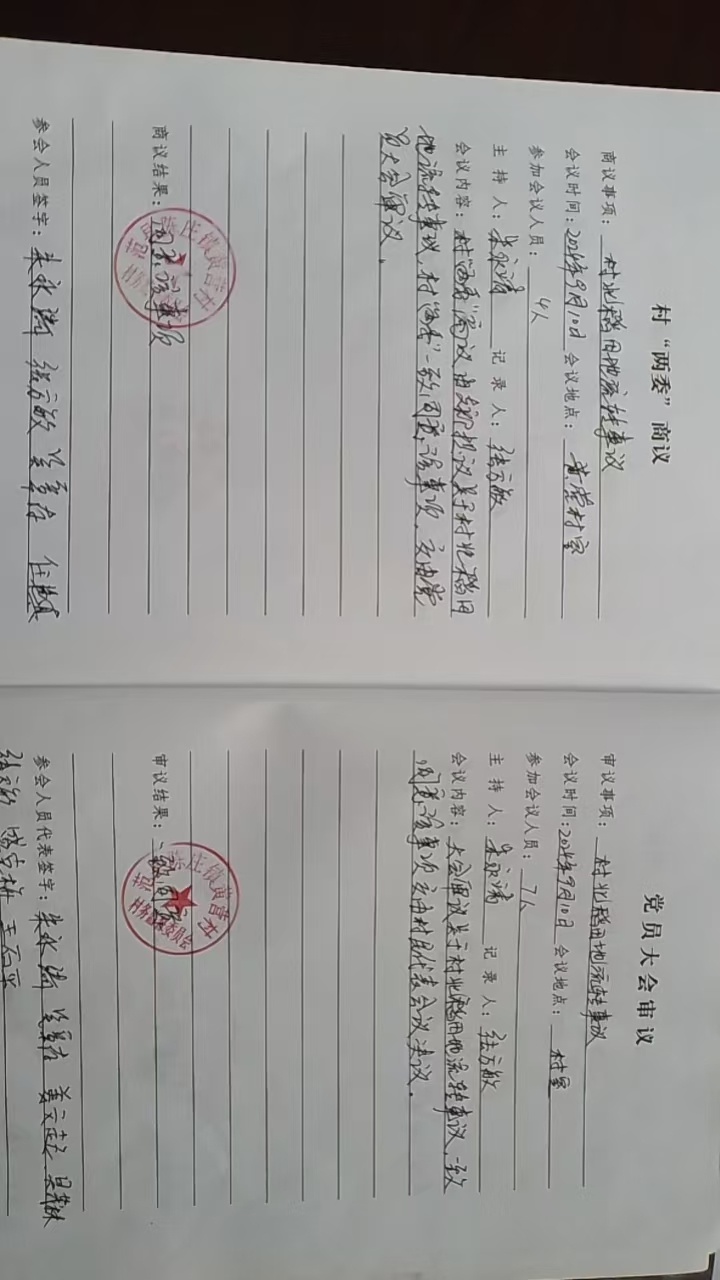 村“两委”商议
商议事项：村北稻田地流转事议
会议时间：2024年9月10日 会议地点：黄营村室
参加会议人员：4人
主持人：朱永清 记录人：张云敏
会议内容：村“两委”商议由支部提议关于村北稻田
地流转事议，村“两委”一致同意该事项，交由党
员大会审议。
商议结果：同意该事项
参会人员签字：朱永清 张云敏
党员大会审议
审议事项：村北稻田地流转事议
会议时间：2024年9月10日 会议地点：村室
参加会议人员：7人
主持人：朱永清 记录人：张云敏
会议内容：大会审议关于村北稻田地流转事议，一致
同意该事项交由村民代表会议决议。
审议结果：一致同意
村务监督委员会
参会人员代表签字：朱永清